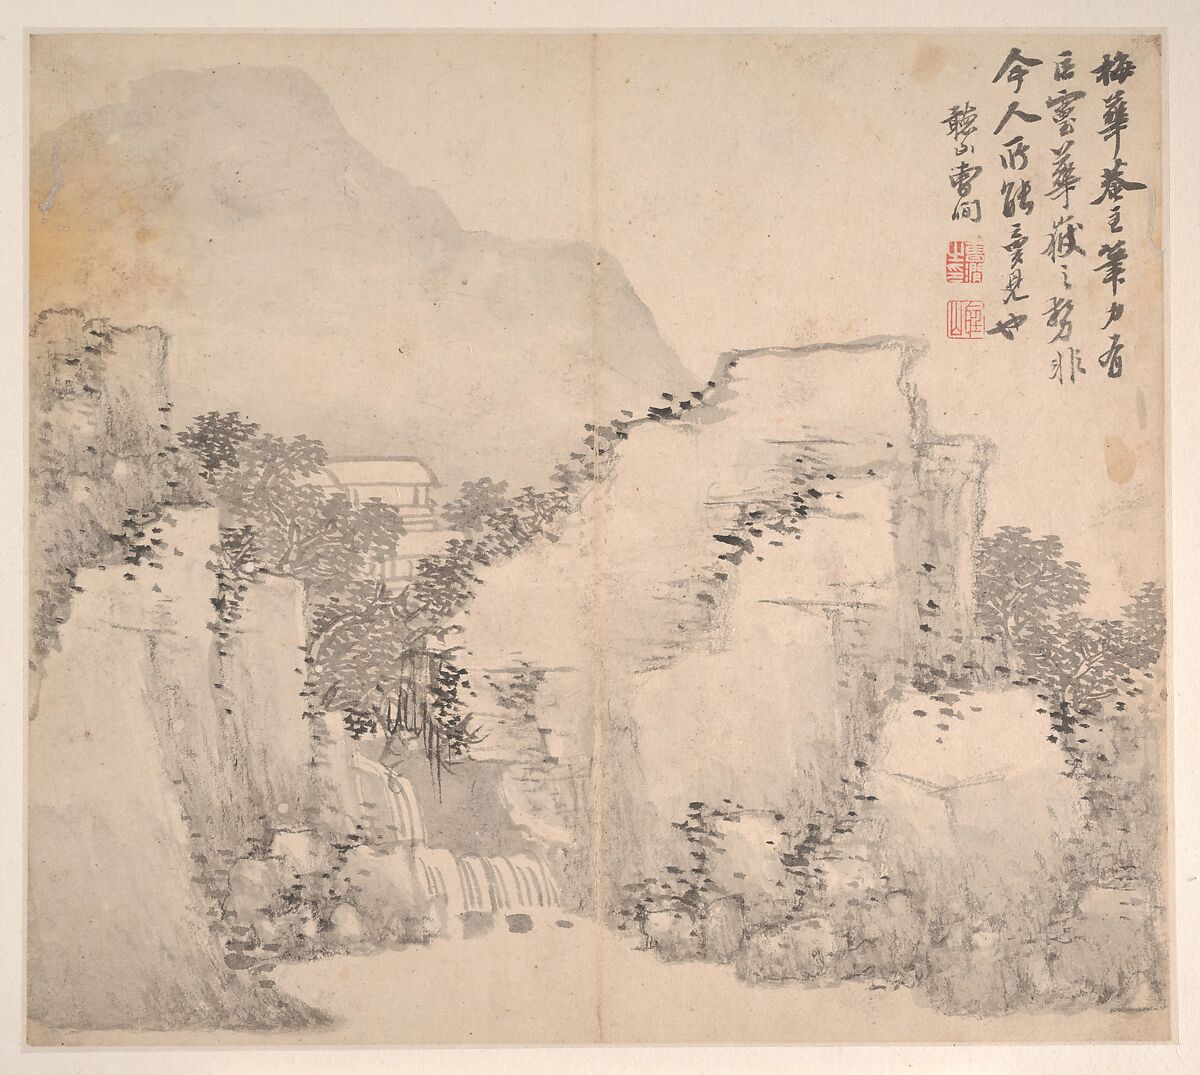 梅華菴主筆力有
巨靈華嶽之勢非
今人所能夢見也
聽山曹